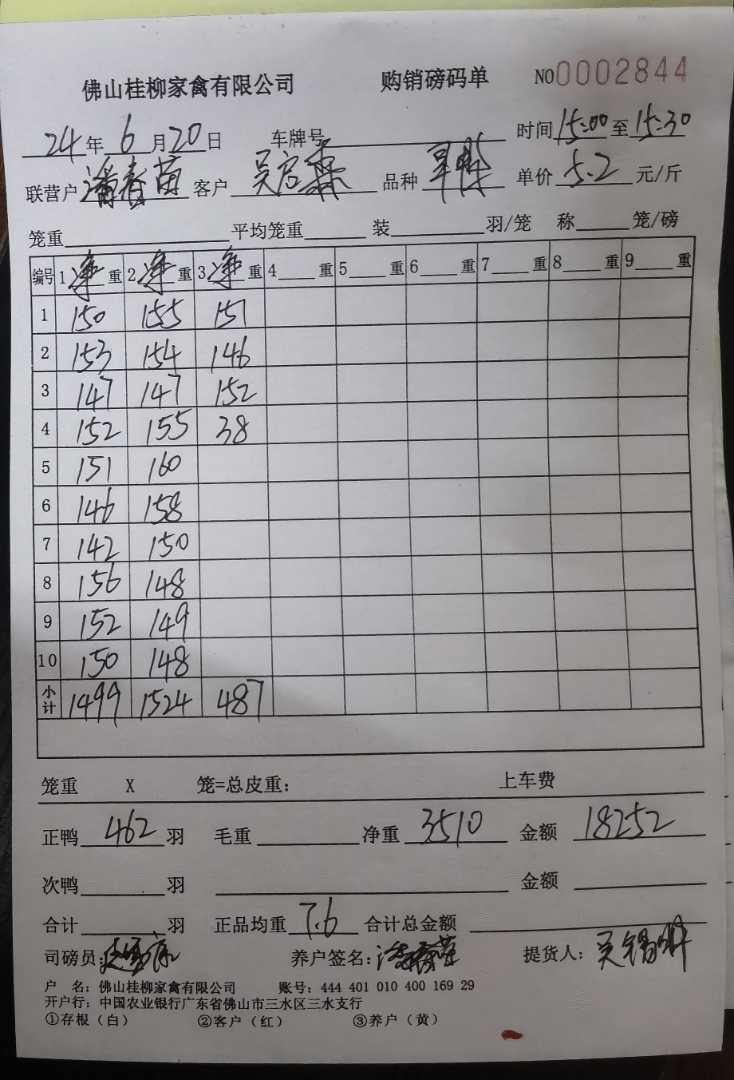 佛山桂柳家禽有限公司 购销磅码单 NO0002844
24年6月20日 车牌号 时间15:00至15:30
联营户潘春苗 客户 吴启森 品种 单价 5.2 元/斤
笼重 平均笼重 装 羽/笼 称 笼/磅
编号 1净重 2净重 3净重 4重 5重 6重 7重 8重 9重
1 150 155 151
2 153 154 146
3 147 147 152
4 152 155 38
5 151 160
6 146 158
7 142 150
8 156 148
9 152 149
10 150 148
小计 1499 1524 487
笼重 X 笼=总皮重: 上车费
正鸭 462 羽 毛重 净重 3510 金额 18252
次鸭 羽 金额
合计 羽 正品均重 7.6 合计总金额
司磅员: 养户签名:潘春苗 提货人:
户 名:佛山桂柳家禽有限公司 账号:444 401 010 400 169 29
开户行:中国农业银行广东省佛山市三水区三水支行
①存根(白) ②客户(红) ③养户(黄)